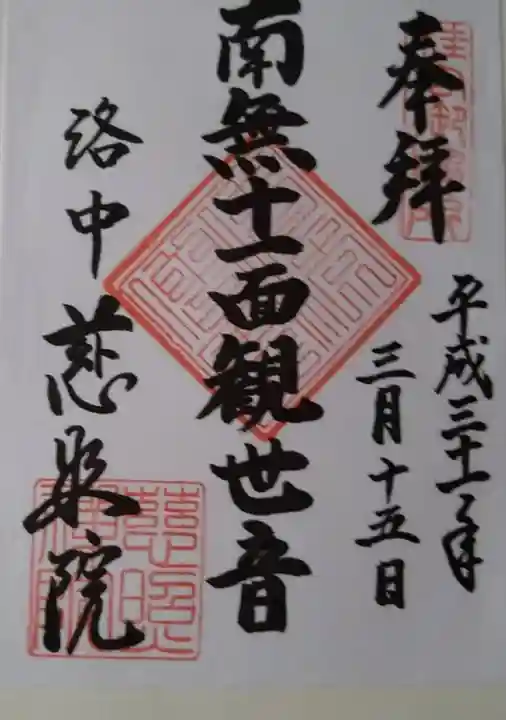 奉拝
平成三十一年
三月十五日
南無十一面観世音
洛中 慈照院
慈照禅院